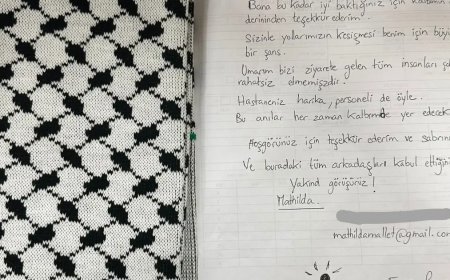 Bana bu kadar iyi baktığınız için kalbimin
derininden teşekkür ederim.
Sizinle yollarımızın kesişmesi benim için büyü
bir şans.
Umarım bizi ziyarete gelen tüm insanları
rahatsız etmemişzdir.
Hastaneniz harika, personeli de öyle.
Bu anılar her zaman kalbimde yer edecek
Hoşgörünüz için teşekkür ederim ve sabrını
Ve buradaki tüm arkadaşları kabul ettiğini
Yakınd görüşürüz!
Mathilda
mathildamallet@gmail.com